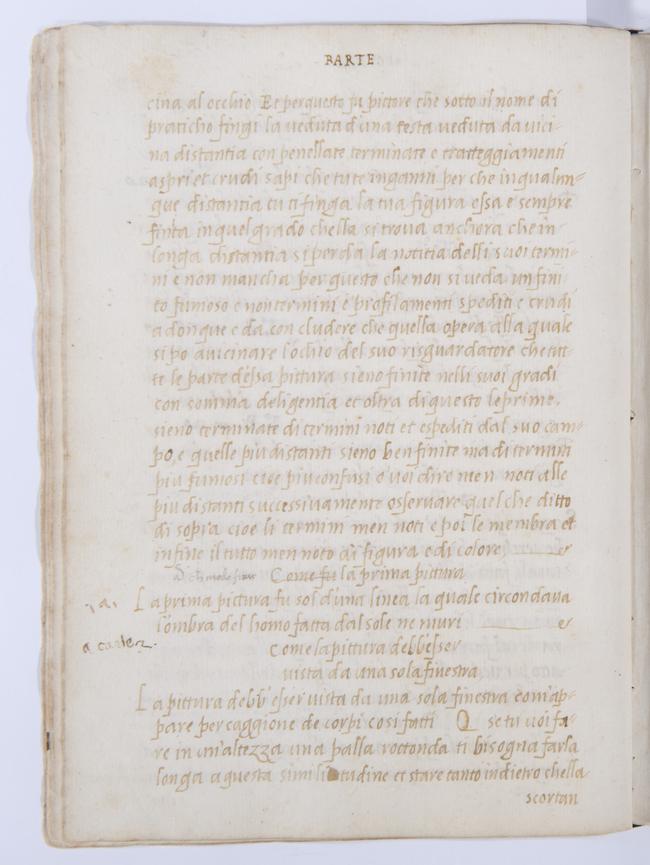 PARTE
cina al occhio Et perquesto fu pictore che sotto il nome di
praticho fingi la veduta d'una testa veduta da vici-
na distantia con penellate terminate e tratteggiamenti
aspri et crudi sapi che tu te inganni per che in qualun-
que distantia tu ti finga la tua figura essa e sempre
finita in quel grado chella si trova anchora che in
longa distantia si perda la notitia delli suoi termi-
ni e non mancha per questo che non si veda un fini
to fumoso e non termini e profilamenti spediti e crudi
adonque e da con cludere che quella opera alla quale
si po avicinare l'ochio del suo risguardatore che tut-
te le parte d'essa pittura sieno finite nelli suoi gradi
con somma deligentia et oltra di questo le prime.
sieno terminate di termini noti et espediti dal suo cam-
po, e quelle piu distanti sieno ben finite ma di termini
piu fumosi cioe piu confusi o voi dire men noti alle
piu distanti successivamente osservare quel che ditto
di sopra cioe li termini men noti e poi le membra et
in fine il tutto men noto di figura e di colore
Come fu la prima pictura
La prima pictura fu sol d'una linea la quale circondava
l'ombra del homo fatta dal sole ne muri
Come la pittura debb'esser
vista da una sola finestra
La pittura debb' esser vista da una sola finestra com'ap-
pare per caggione de corpi cosi fatti se tu voi fa-
re in un'altezza una palla rottonda ti bisogna farla
longa a questa similitudine et stare tanto indietro chella
scortan